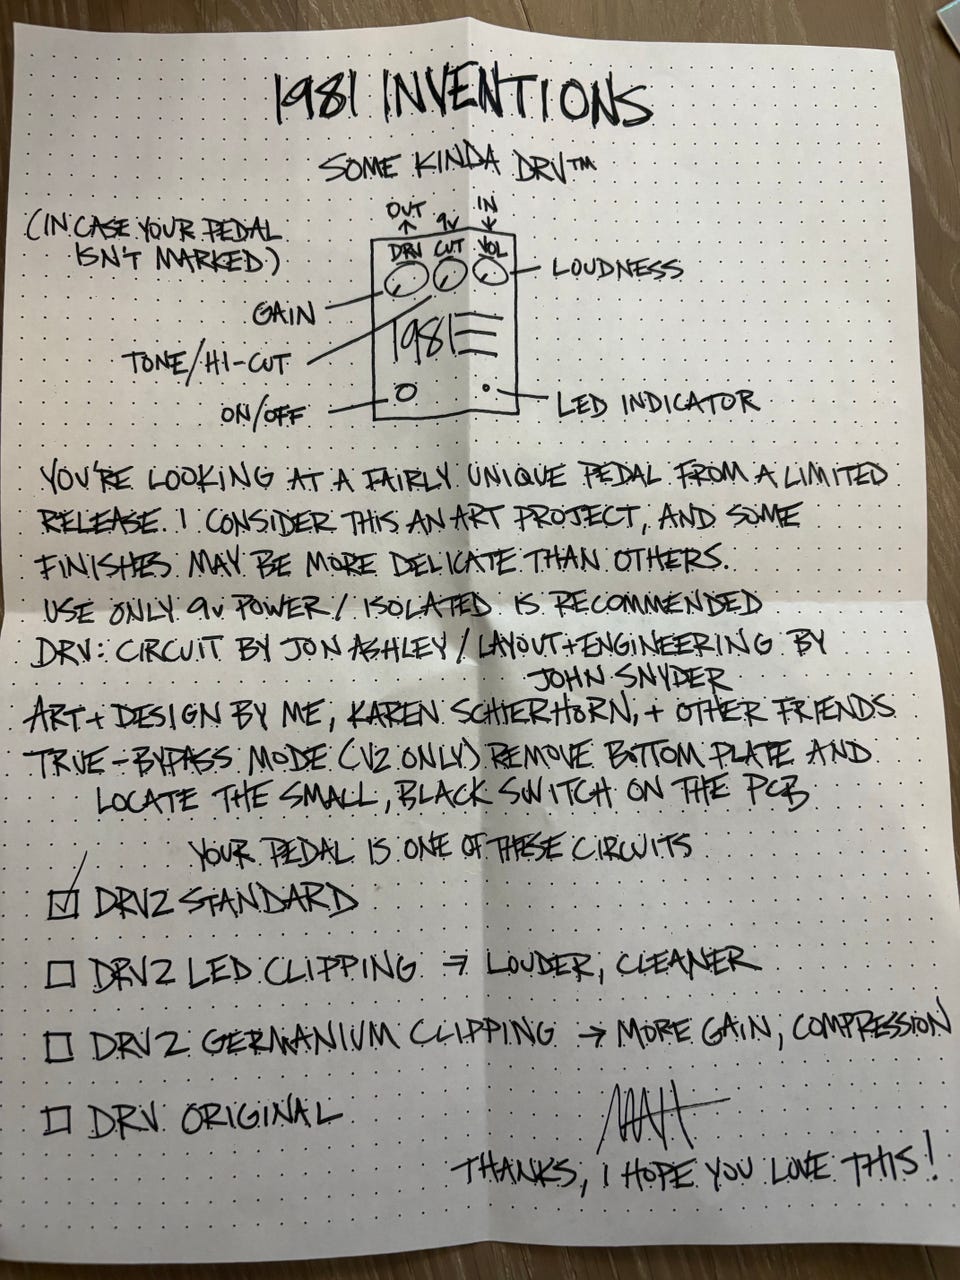 1981 INVENTIONS
SOME KINDA DRV™
(IN CASE YOUR PEDAL
ISN'T MARKED)
OUT 9V IN
DRV CUT VOL
LOUDNESS
GAIN
1981
TONE/HI-CUT
ON/OFF
LED INDICATOR
YOU'RE LOOKING AT A FAIRLY UNIQUE PEDAL FROM A LIMITED
RELEASE. I CONSIDER THIS AN ART PROJECT, AND SOME
FINISHES MAY BE MORE DELICATE THAN OTHERS.
USE ONLY 9V POWER / ISOLATED IS RECOMMENDED
DRV: CIRCUIT BY JON ASHLEY / LAYOUT+ENGINEERING BY
JOHN SNYDER
ART+DESIGN BY ME, KAREN SCHIERHORN, + OTHER FRIENDS
TRUE-BYPASS MODE (V2 ONLY) REMOVE BOTTOM PLATE AND
LOCATE THE SMALL, BLACK SWITCH ON THE PCB
YOUR PEDAL IS ONE OF THESE CIRCUITS
☑ DRV2 STANDARD
☐ DRV2 LED CLIPPING → LOUDER, CLEANER
☐ DRV2 GERMANIUM CLIPPING → MORE GAIN, COMPRESSION
☐ DRV ORIGINAL
MATT
THANKS, I HOPE YOU LOVE THIS!